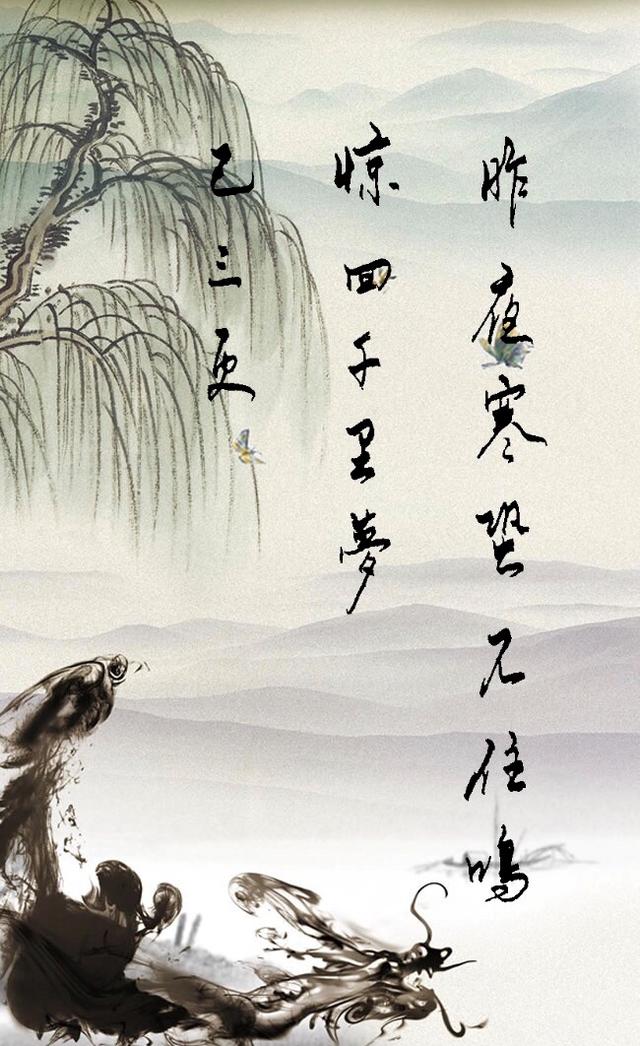 昨夜寒蛩不住鸣
惊回千里夢
已三更